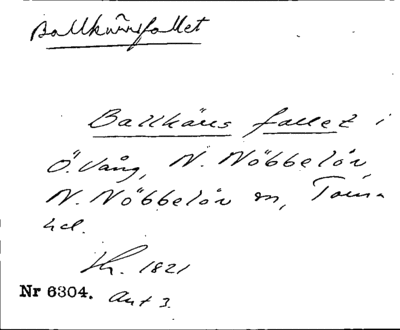 Ballkärrsfallet
Ballkärrs fallet i
Ö. Vång, N. Nöbbelöv,
N. Nöbbelöv sn, Torna
hd.
Kh. 1821
Nr 6304. Akt 3.